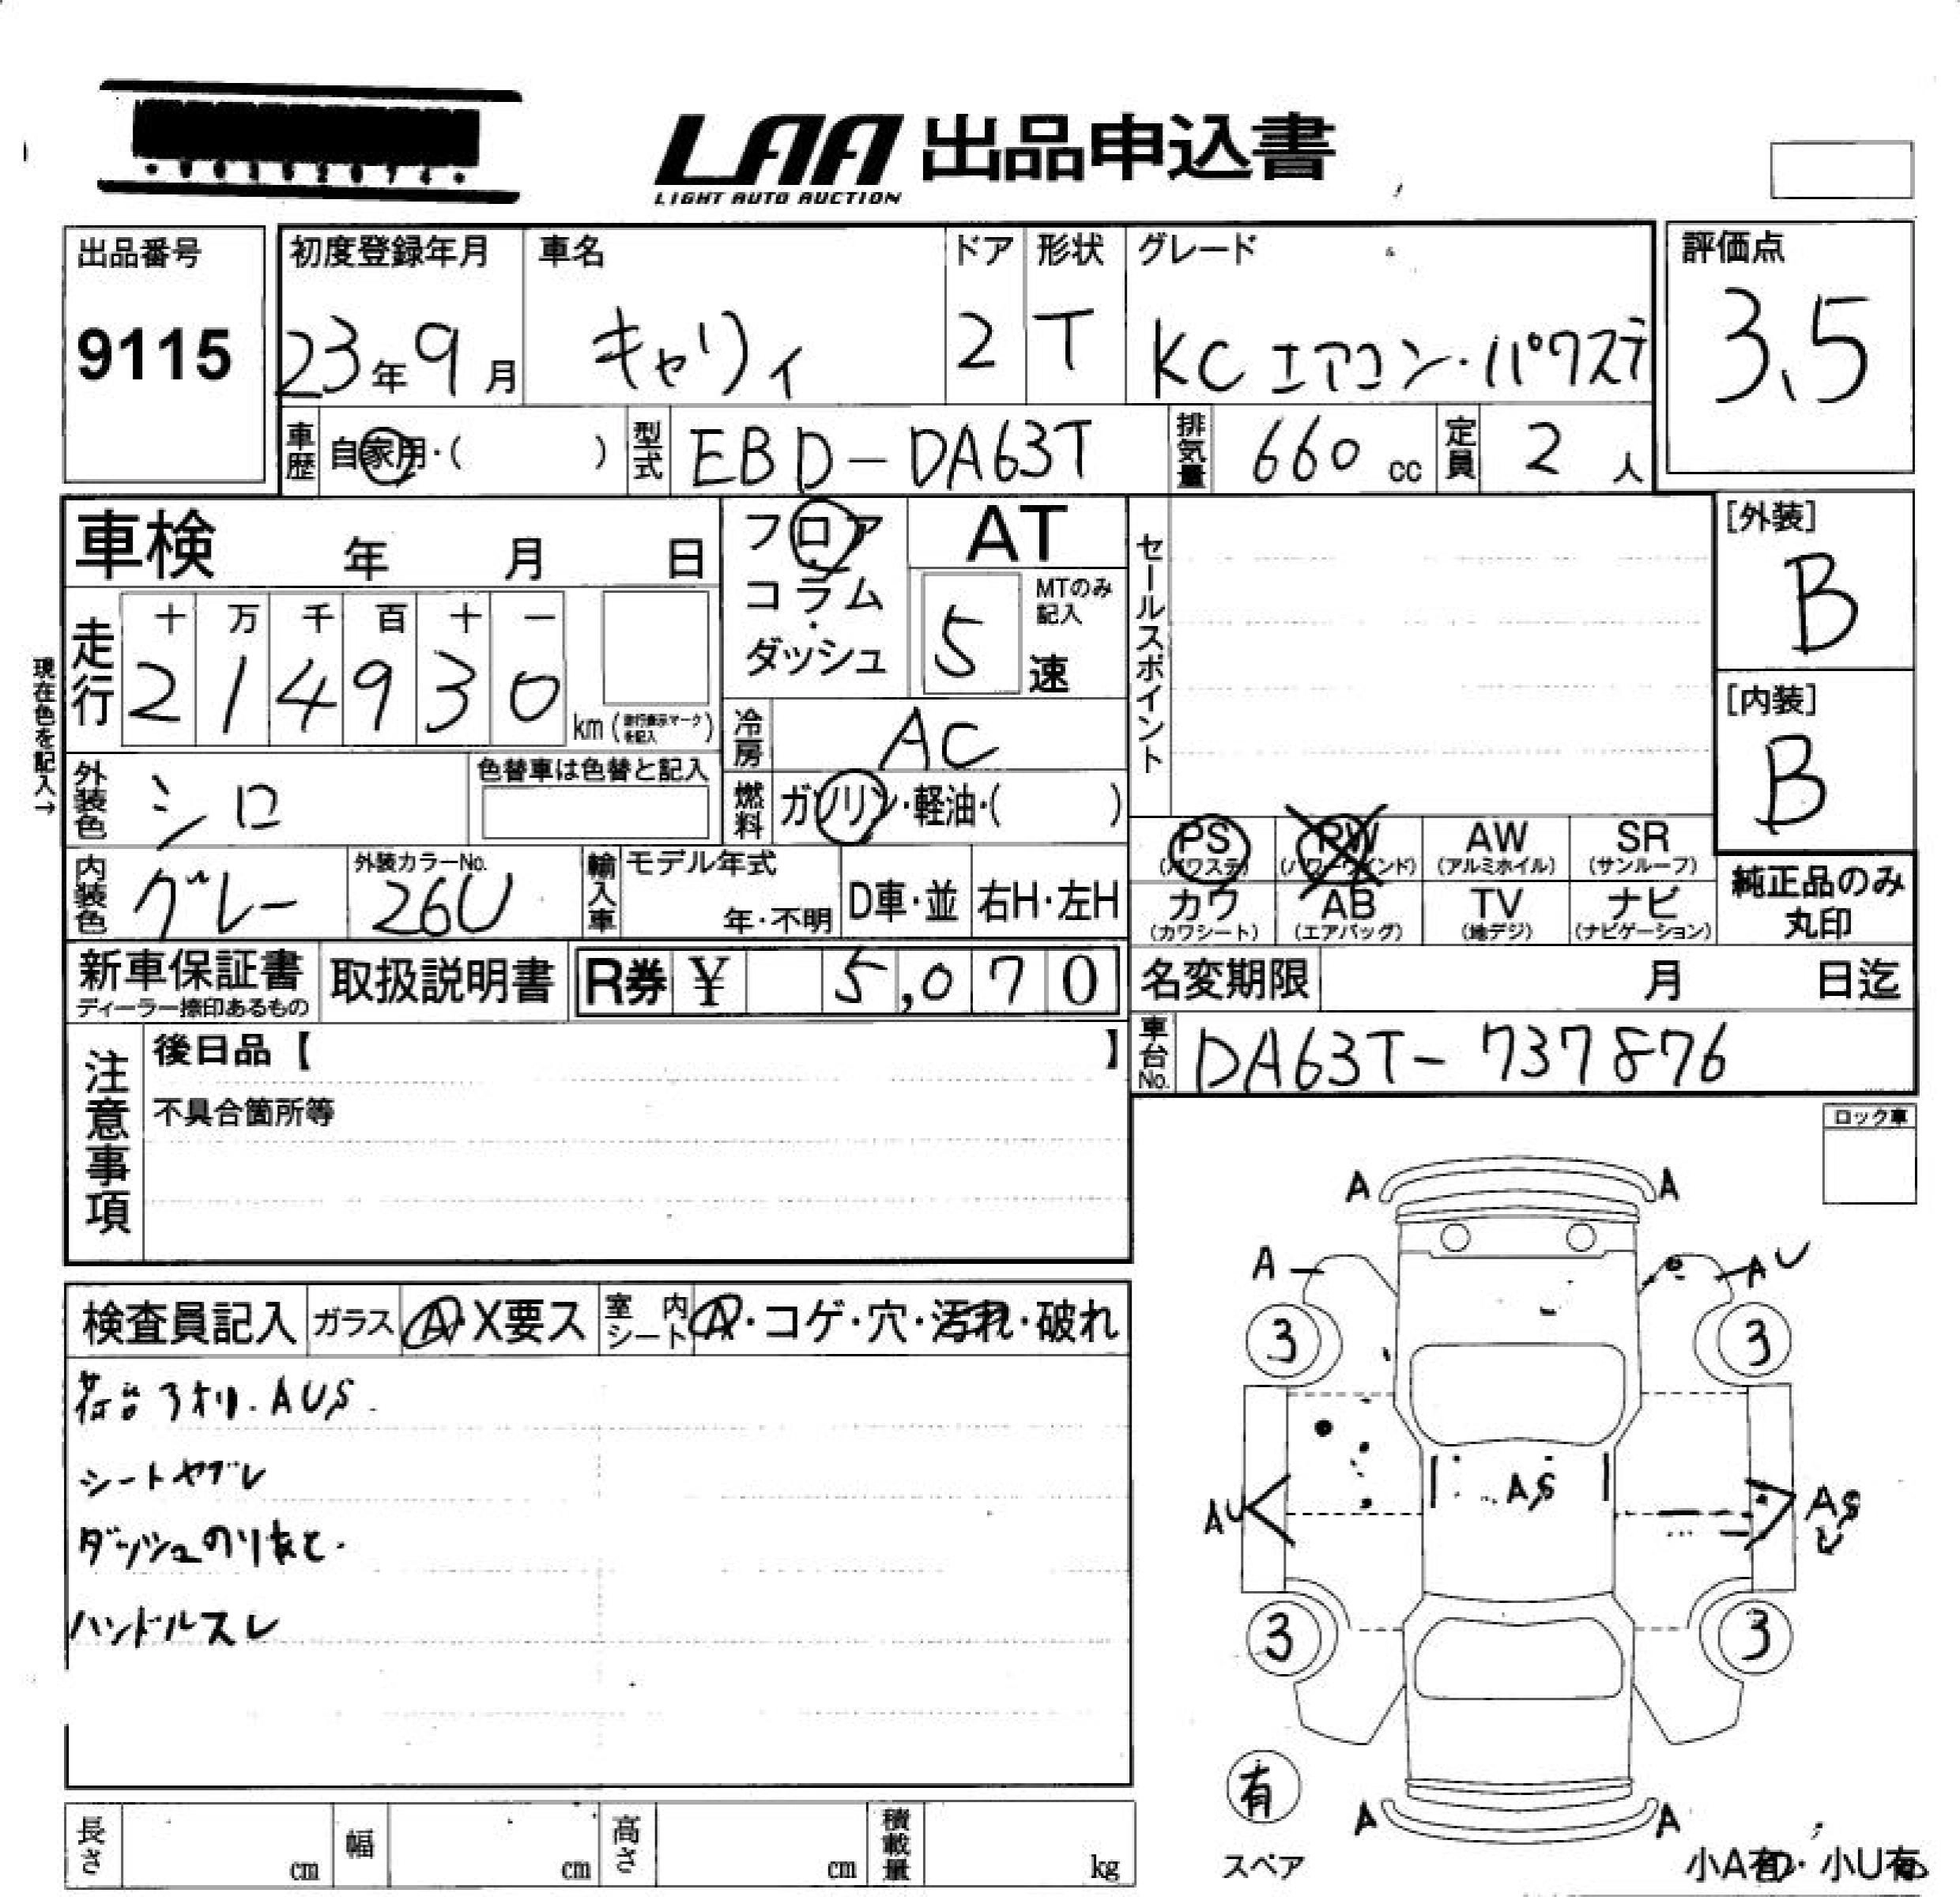 LAA 出品申込書
LIGHT AUTO AUCTION
出品番号
9115
初度登録年月
23年9月
車名
キャリィ
ドア
2
形状
T
グレード
KCエアコン・パワステ
評価点
3.5
車歴
自家用・( )
型式
EBD-DA63T
排気量
660 cc
定員
2 人
車検 年 月 日
フロア・コラム・ダッシュ
AT
5
MTのみ記入
速
セールスポイント
[外装]
B
[内装]
B
現在色を記入→
走行
十 万 千 百 十 一
2 1 4 9 3 0
km (走行表示マークを記入)
冷房
AC
外装色
シロ
色替車は色替と記入
燃料
ガソリン・軽油・( )
PS (パワステ)
PW (パワーウインド)
AW (アルミホイル)
SR (サンルーフ)
カワ (カワシート)
AB (エアバッグ)
TV (地デジ)
ナビ (ナビゲーション)
純正品のみ丸印
内装色
グレー
外装カラーNo.
26U
輸入車
モデル年式
年・不明
D車・並
右H・左H
新車保証書
ディーラー捺印あるもの
取扱説明書
R券 ¥ 5,070
名変期限 月 日迄
車台No.
DA63T-737876
注意事項
後日品【 】
不具合箇所等
ロック車
検査員記入
ガラス
A・X要ス
室内シート
A・コゲ・穴・汚れ・破れ
荷台3オリ.AUS
シートヤブレ
ダッシュのりあと.
ハンドルスレ
A A
A AU
3 3
AU AS AS
3 3
有
スペア
A A
小A有・小U有
長さ cm
幅 cm
高さ cm
積載量 kg